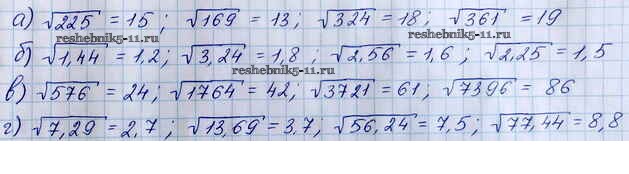 а) √225 = 15; √169 = 13; √324 = 18; √361 = 19
reshebnik5-11.ru reshebnik5-11.ru
б) √1,44 = 1,2; √3,24 = 1,8; √2,56 = 1,6; √2,25 = 1,5
reshebnik5-11.ru
в) √576 = 24; √1764 = 42; √3721 = 61; √7396 = 86
г) √7,29 = 2,7; √13,69 = 3,7, √56,24 = 7,5; √77,44 = 8,8